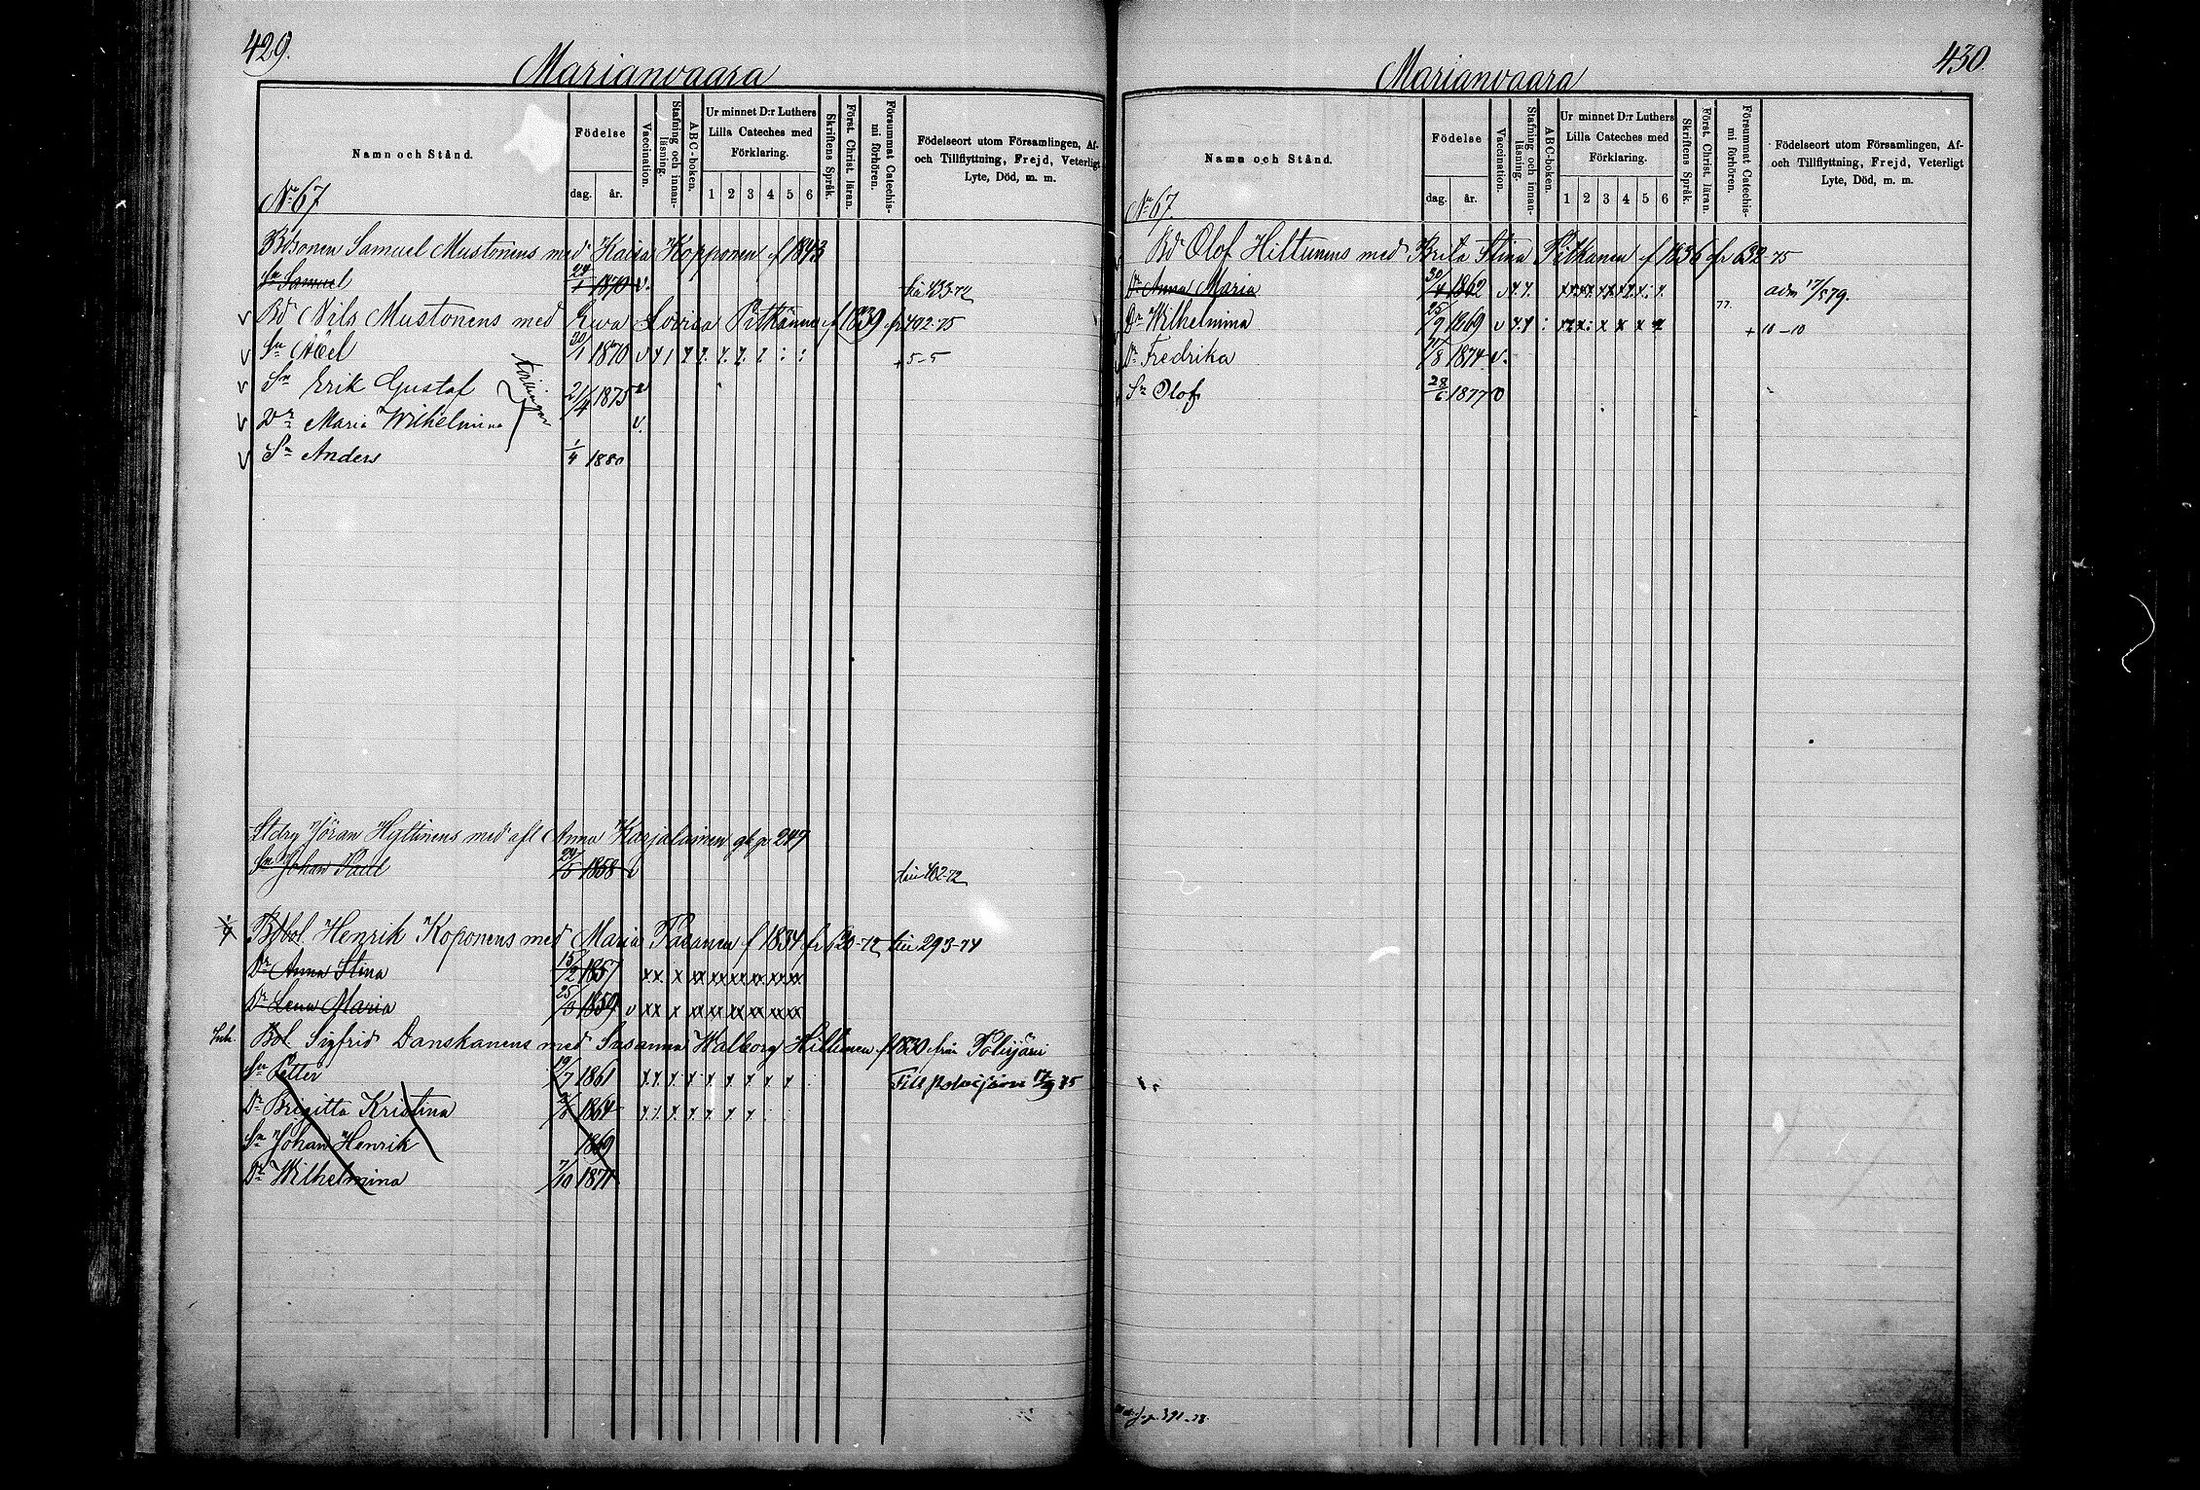 429.
Marianvaara
Namn och Stånd.
Födelse
dag. år.
Vaccination.
Stafning och innan-läsning.
ABC-boken.
Ur minnet D:r Luthers Lilla Cateches med Förklaring.
1 2 3 4 5 6
Skriftens Språk.
Först. Christ. läran.
Försummat Catechis-mi förhören.
Födelseort utom Församlingen, Af-
och Tillflyttning, Frejd, Veterligt
Lyte, Död, m. m.
No 67
Bdsonen Samuel Mustonens med Kaisa Kopponen f 1843
Sn Samuel 1870 v. 433-72
v Bd Nils Mustonens med Ewa Lovisa Pitkänen f 1839 fr 402-75
v Sn Axel 30/1 1870 v + 5-5
v Sn Erik Gustaf 21/4 1875 v
v Dr Maria Wilhelmina v.
v Sn Anders 1/4 1880
Jöran Hyttinens med afl Anna Karjalainen 249
Sn Johan Paul 24/5 1858 v 402-72
Henrik Koponens med Maria f 1834 fr 120-72 293-74
Dr Anna Stina 15/2 1857 x x x xx xx xx xx xx xx
Dr Lena Maria 25/9 1859 v x x x xx xx xx xx xx xx
Inh. Bol Sigfrid Danskanens med Susanna Walborg Hiltunen f 1830 från Polvijärvi
Sn Petter 19/7 1861 Till Polvijärvi 17/9 75
Dr Bregitta Kristina 1864
Sn Johan Henrik 1869
Dr Wilhelmina 7/10 1871
430.
Marianvaara
Namn och Stånd.
Födelse
dag. år.
Vaccination.
Stafning och innan-läsning.
ABC-boken.
Ur minnet D:r Luthers Lilla Cateches med Förklaring.
1 2 3 4 5 6
Skriftens Språk.
Först. Christ. läran.
Försummat Catechis-mi förhören.
Födelseort utom Församlingen, Af-
och Tillflyttning, Frejd, Veterligt
Lyte, Död, m. m.
No 67.
Bd Olof Hiltunens med Brita Stina Pitkänen f 1836 fr 632-75
Dr Anna Maria 30/4 1862 v adm 17/5 79.
Dr Wilhelmina 25/9 1869 v 77. + 10-10
Dr Fredrika 1874 v.
Sn Olof 28/6 1877 v
391-78.